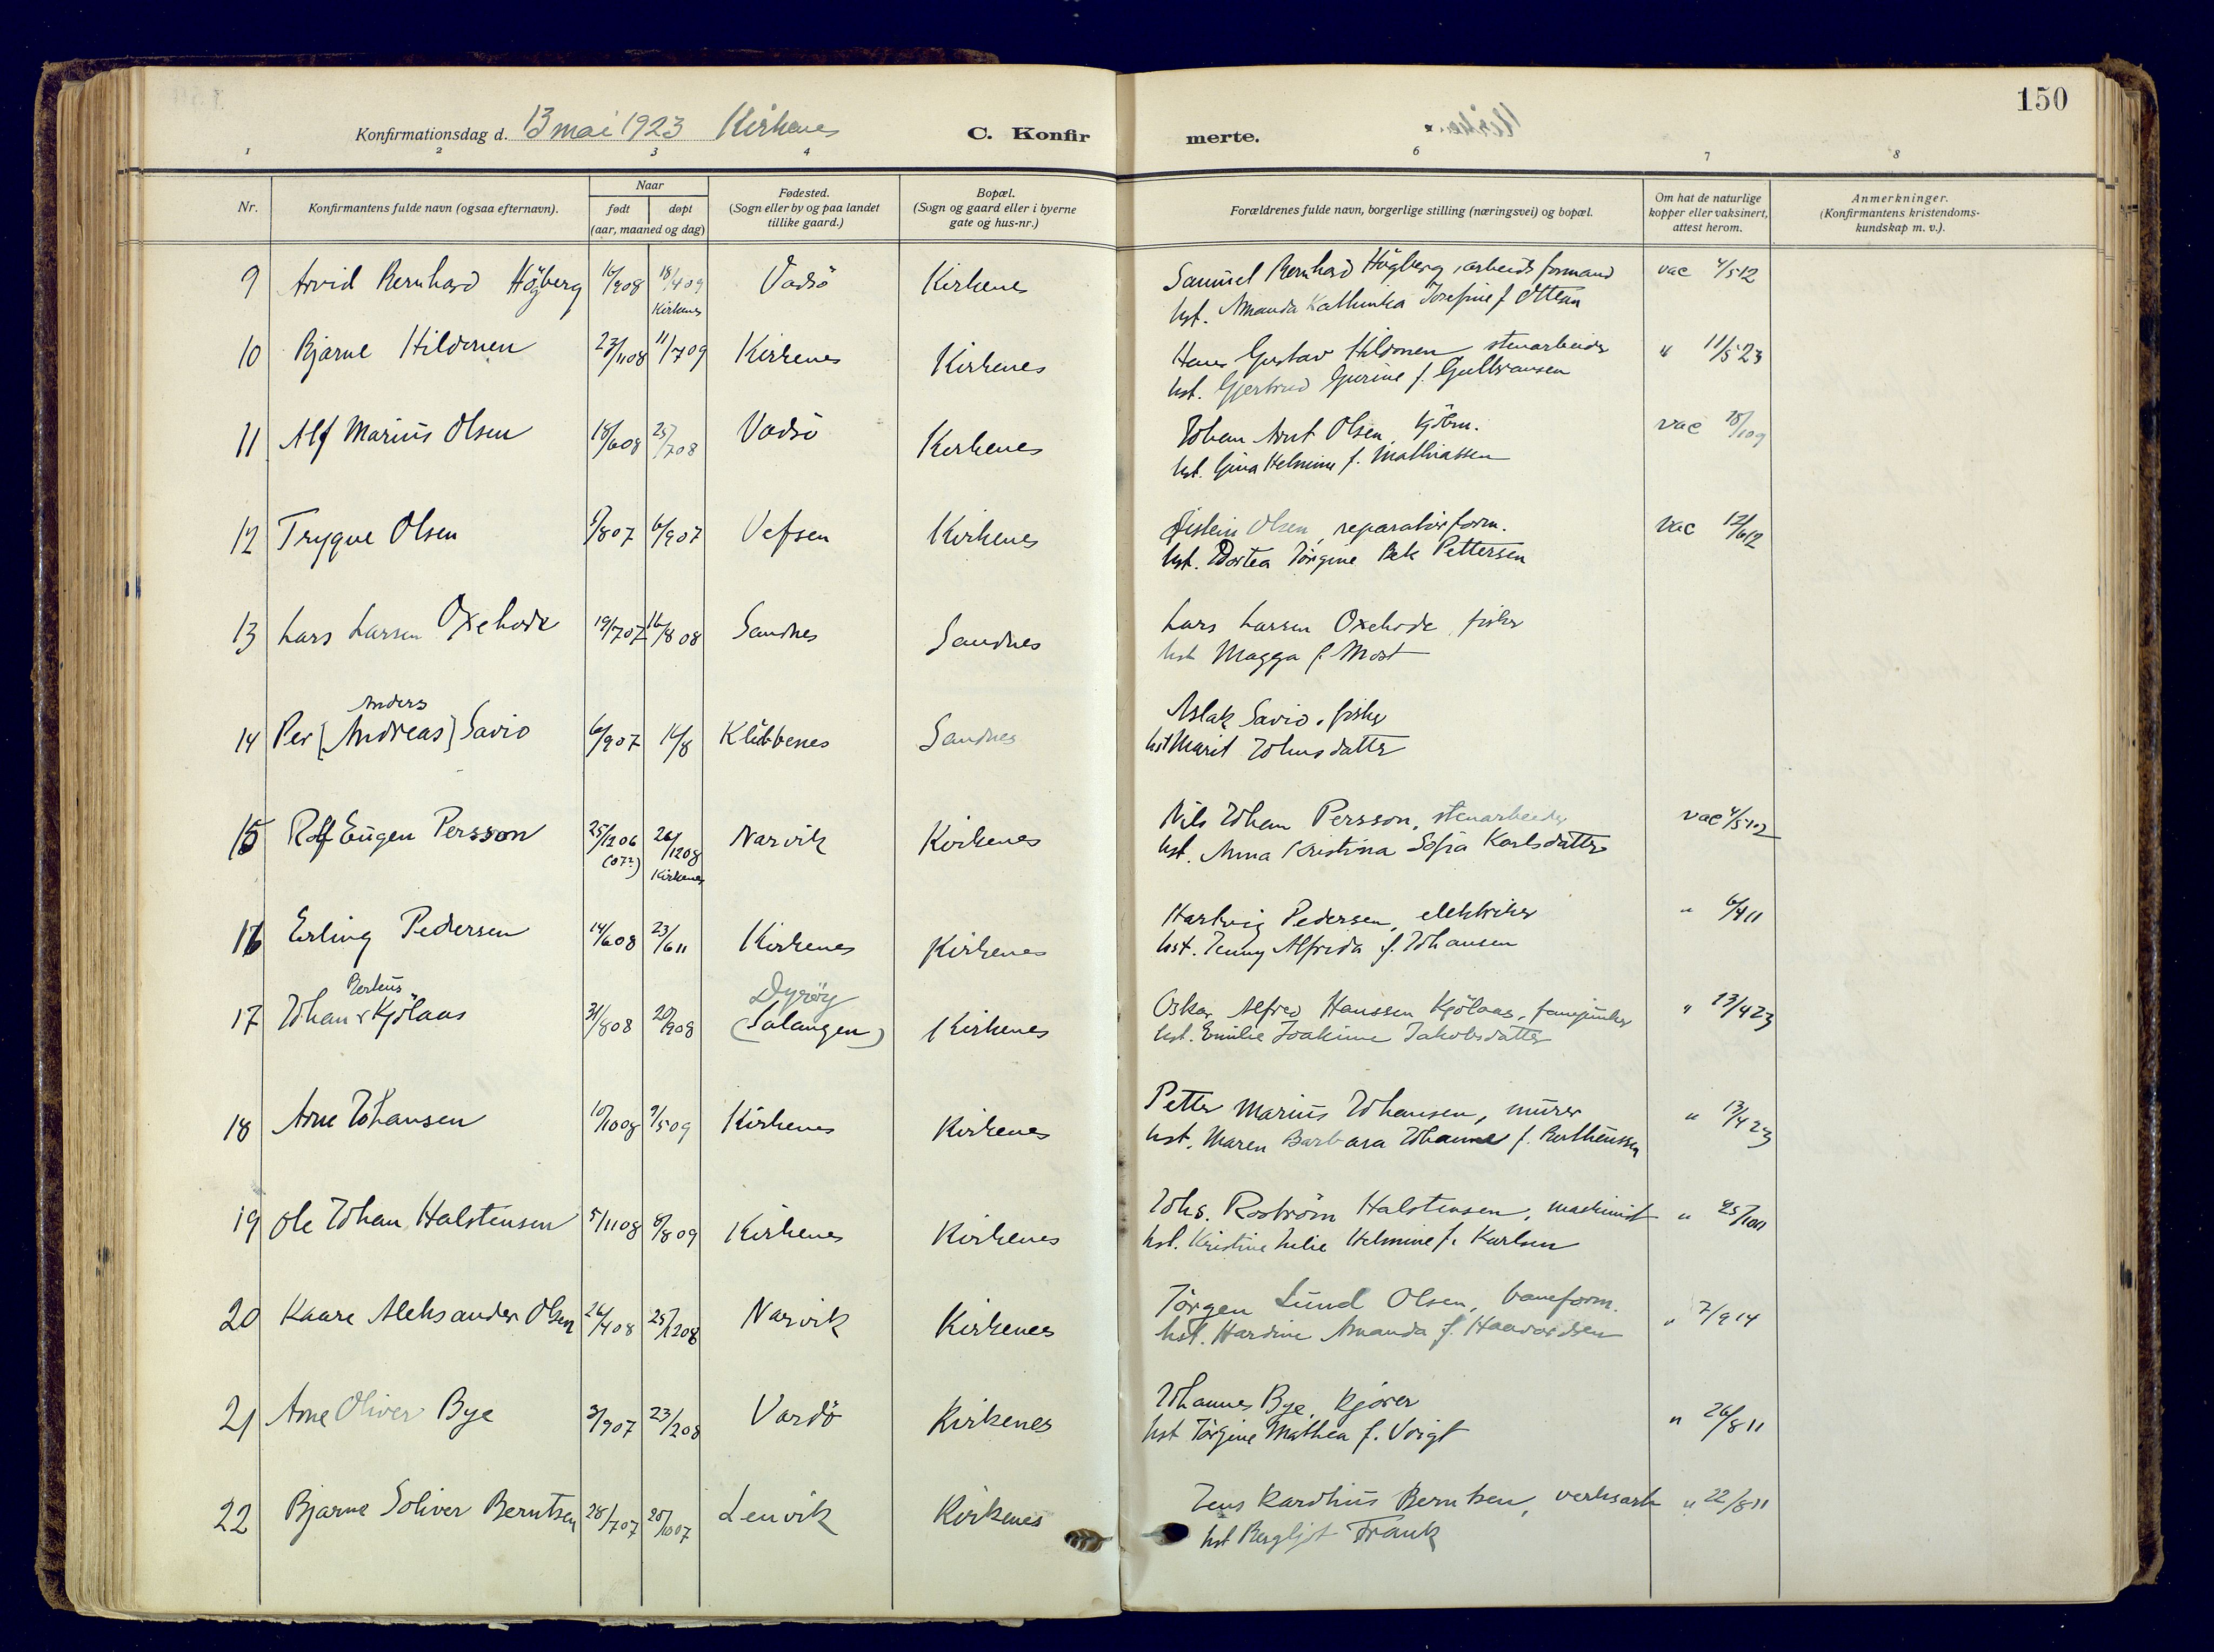 150
Konfirmationsdag d. 13 mai 1923 Kirkenes C. Konfirmerte.
1 2 3 4 6 7 8
Nr. Konfirmantens fulde navn (ogsaa efternavn). Naar født døpt (aar, maaned og dag) Fødested. (Sogn eller by og paa landet tillike gaard.) Bopæl. (Sogn og gaard eller i byerne gate og hus-nr.) Forældrenes fulde navn, borgerlige stilling (næringsvei) og bopæl. Om hat de naturlige kopper eller vaksinert, attest herom. Anmerkninger. (Konfirmantens kristendoms-kundskap m. v.).
9 Arvid Bernhard Högberg 16/908 18/409 Kirkenes Vadsö Kirkenes Samuel Bernhard Högberg, arbeidsformand vac 4/512
hst. Amanda Kathinka Josefine f. Ottem
10 Bjarne Hildonen 23/1108 11/709 Kirkenes Kirkenes Hans Gustav Hildonen stenarbeider " 11/523
hst. Gjertrud Gurine f. Gulbransen
11 Alf Marius Olsen 18/608 25/708 Vadsö Kirkenes Johan Arnt Olsen, kjöbm. vac 18/109
hst. Gina Helmine f. Mathiassen
12 Trygve Olsen 5/807 6/907 Vefsen Kirkenes Øistein Olsen, reparatörform. vac 12/612
hst. Dortea Jörgine Bek Pettersen
13 Lars Larsen Oxehode 19/707 16/808 Sandnes Sandnes Lars Larsen Oxehode, fisker
hst Magga f. Most
Anders
14 Per [Andreas] Savio 6/907 16/8 Klubbenes Sandnes Aslak Savio, fisker
hst Marit Johnsdatter
15 Rolf Eugen Persson 25/1206 (07?) 26/1208 Kirkenes Narvik Kirkenes Nils Johan Persson, stenarbeider vac 4/512
hst. Anna Kristina Sofia Karlsdatter
16 Erling Pedersen 14/608 23/611 Kirkenes Kirkenes Hartvig Pedersen, elektriker " 6/411
hst. Jenny Alfrida f. Johansen
Berteus Dyröy
17 Johan Kjölaas 31/808 20/908 (Salangen) Kirkenes Oskar Alfred Hanssen Kjölaas, fanejunker " 13/423
hst. Emilie Joakime Jakobsdatter
18 Arne Johansen 10/1008 9/509 Kirkenes Kirkenes Petter Marius Johansen, murer " 13/423
hst. Maren Barbara Johanne f. Bertheussen
19 Ole Johan Halstensen 5/1108 8/809 Kirkenes Kirkenes Johs. Roström Halstensen, maskinist " 25/1011
hst. Kristine Julie Helmine f. Karlsen
20 Kaare Aleksander Olsen 26/408 25/1208 Narvik Kirkenes Jörgen Lund Olsen, baneform. " 7/914
hst. Hardine Amanda f. Haavardsen
21 Arne Oliver Bye 3/907 23/208 Vardö Kirkenes Johannes Bye, kjörer " 26/811
hst Jörgine Mathea f. Voigt
22 Bjarne Soliver Berntsen 28/707 20/1007 Lenvik Kirkenes Jens Kardius Berntsen, verksarb " 22/811
hst Bergljot Frank